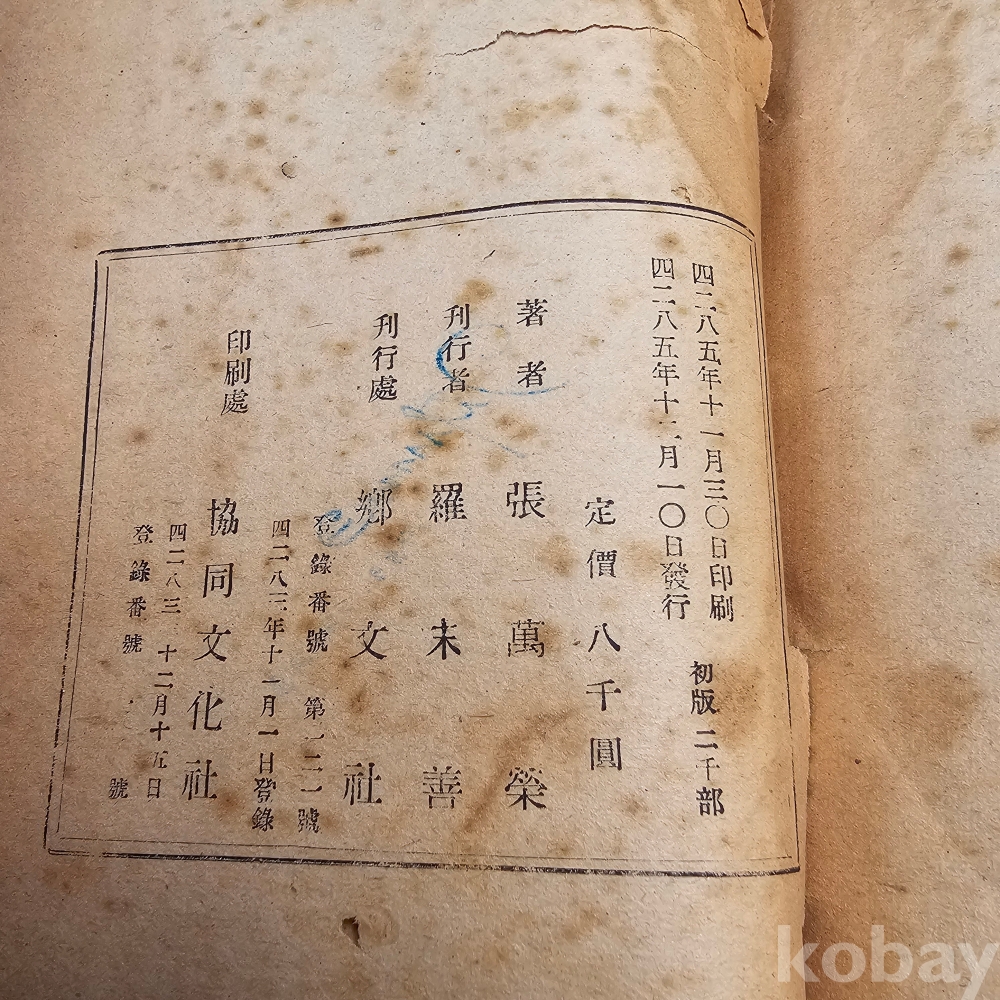 四二八五年十一月三〇日印刷 初版 二千部
四二八五年十二月一〇日發行
定價八千圓
著者 張萬榮
刊行者 羅末善
刊行處 鄕文社
登錄番號 第一二一號
四二八三年十一月一日登錄
印刷處 協同文化社
四二八三 十二月十五日
登錄番號 號
kobay